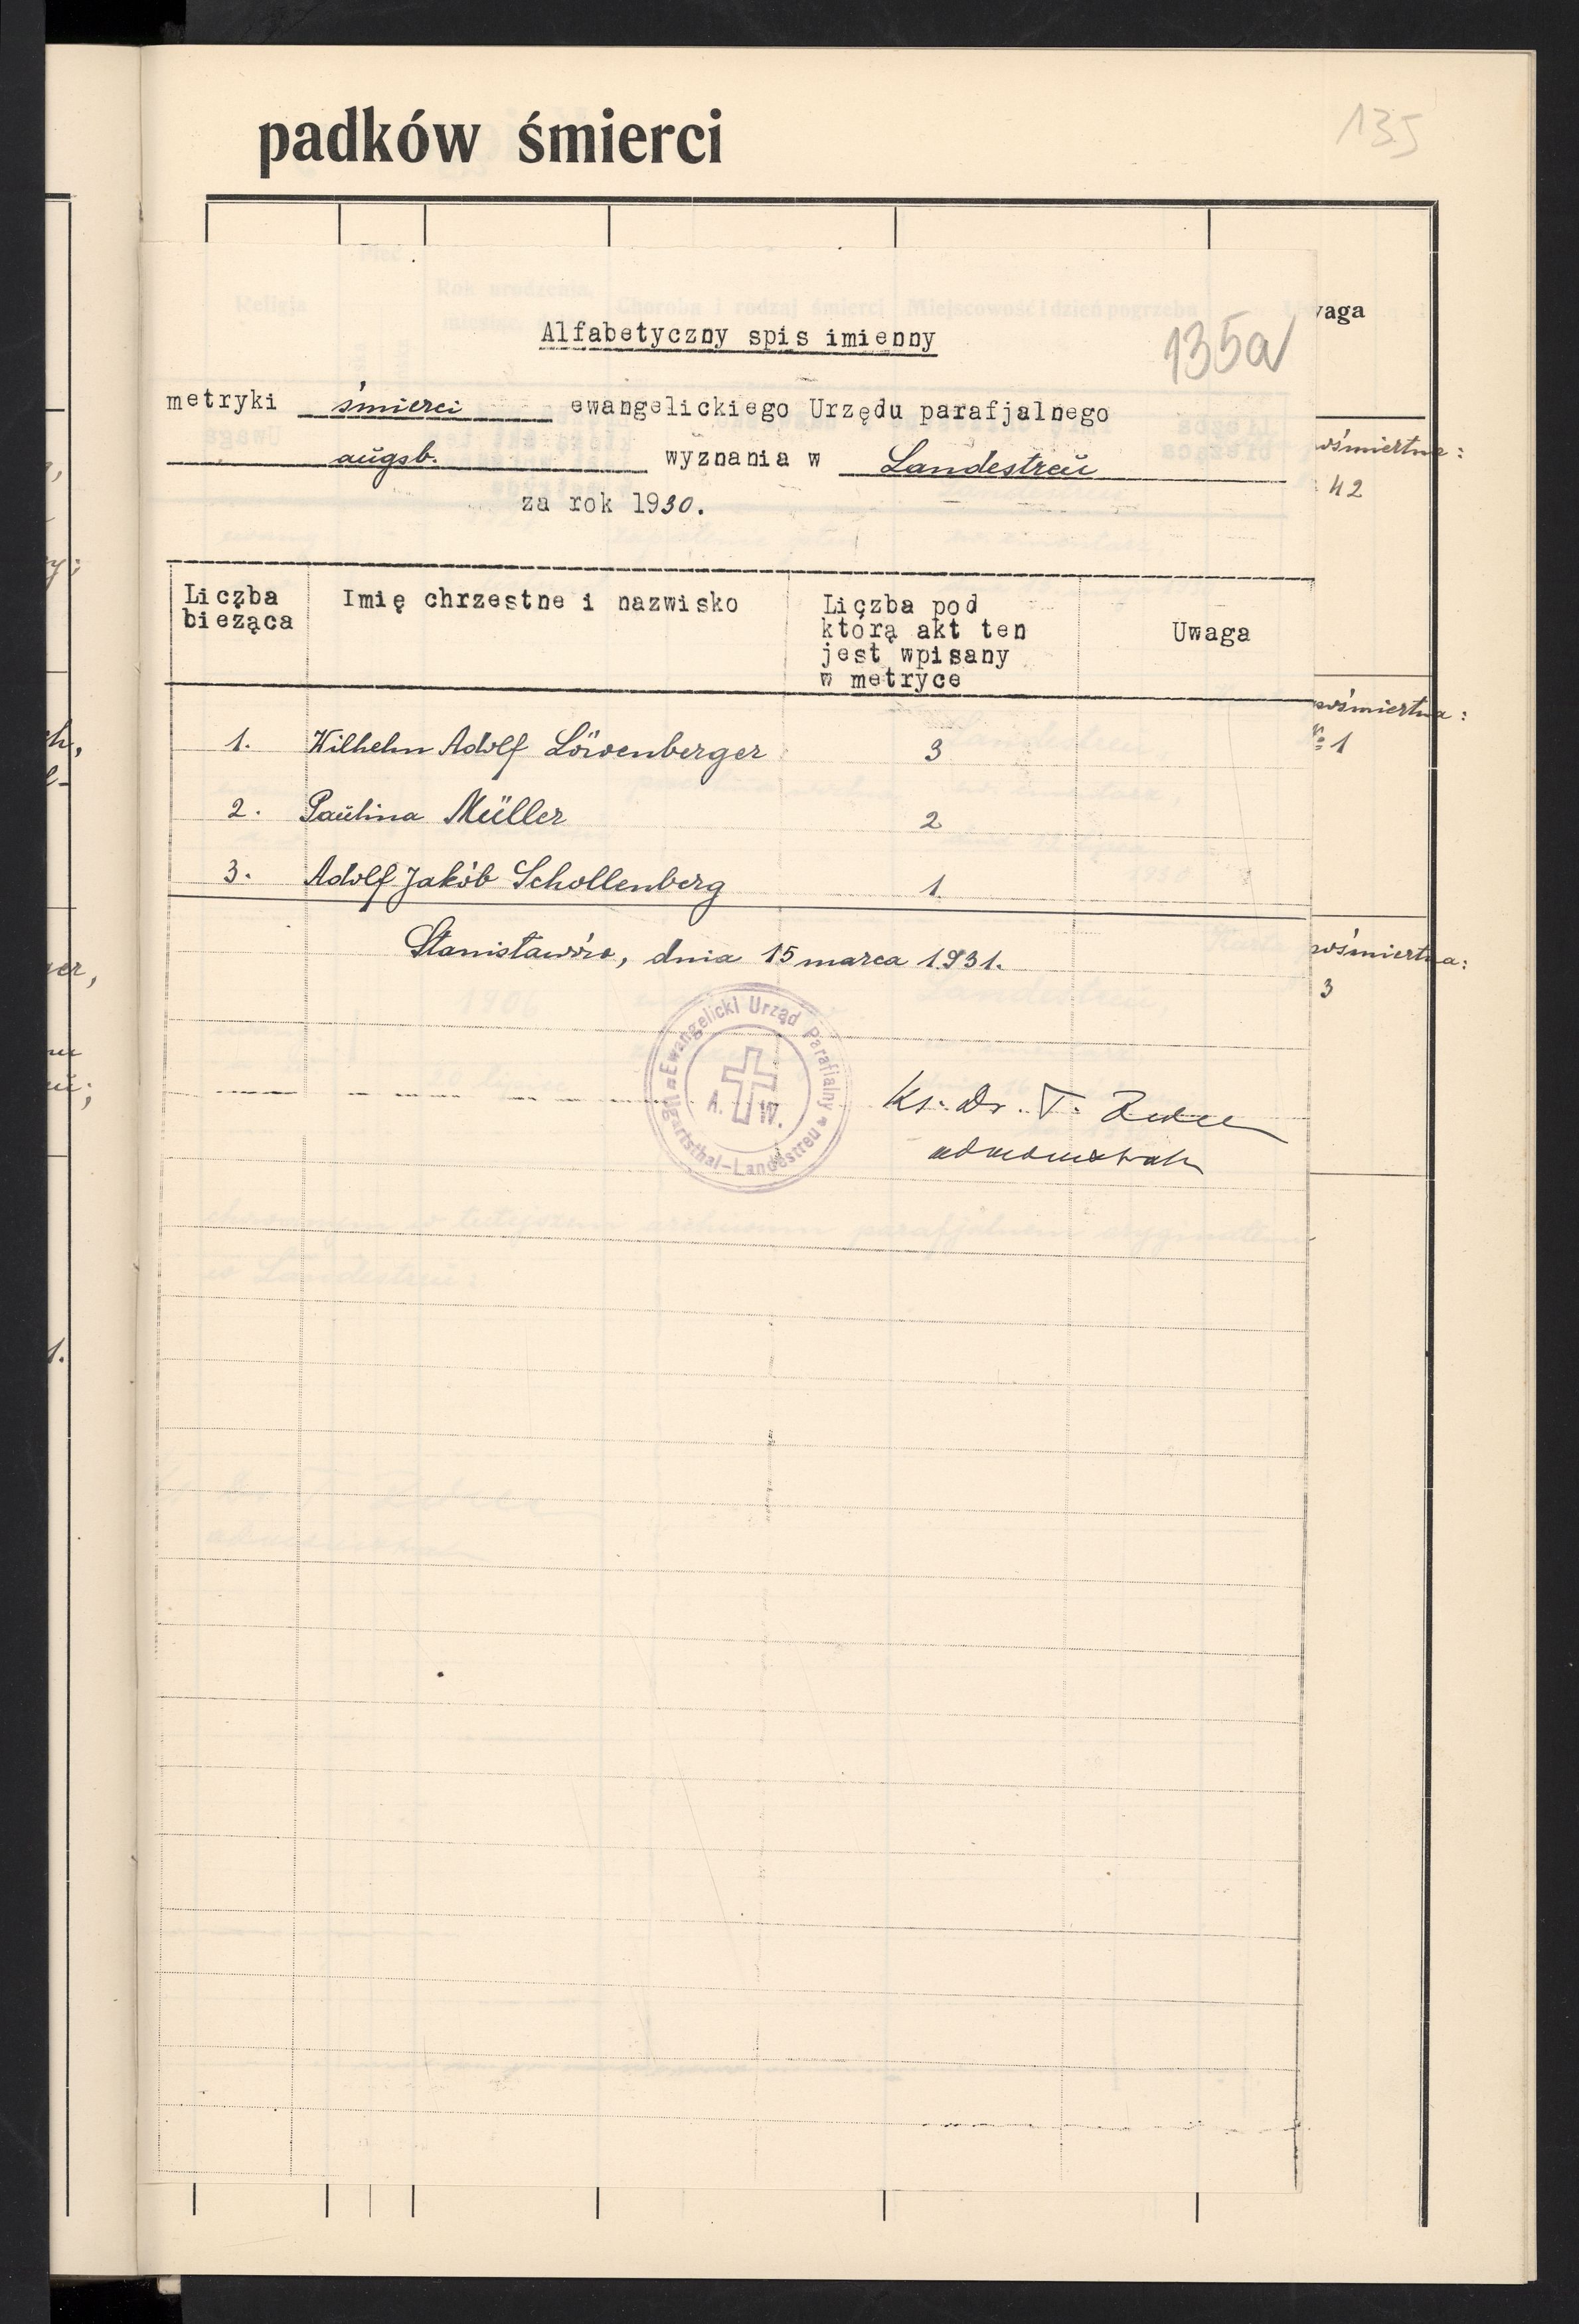 padków śmierci
135
Alfabetyczny spis imienny
135a
vaga
metryki śmierci ewangelickiego Urzędu parafjalnego
augsb. wyznania w Landestreu
za rok 1930.
wśmiertna:
42
Liczba bieżąca
Imię chrzestne i nazwisko
Liczba pod
którą akt ten
jest wpisany
w metryce
Uwaga
1. Wilhelm Adolf Löwenberger 3
2. Paulina Müller 2
3. Adolf Jakób Schollenberg 1.
wśmiertna:
№ 1
Stanisławów, dnia 15 marca 1931.
wśmiertna:
3
Ewangelicki Urząd Parafialny
Ugartsthal-Landestreu
A. W.
Ks. Dr. T.